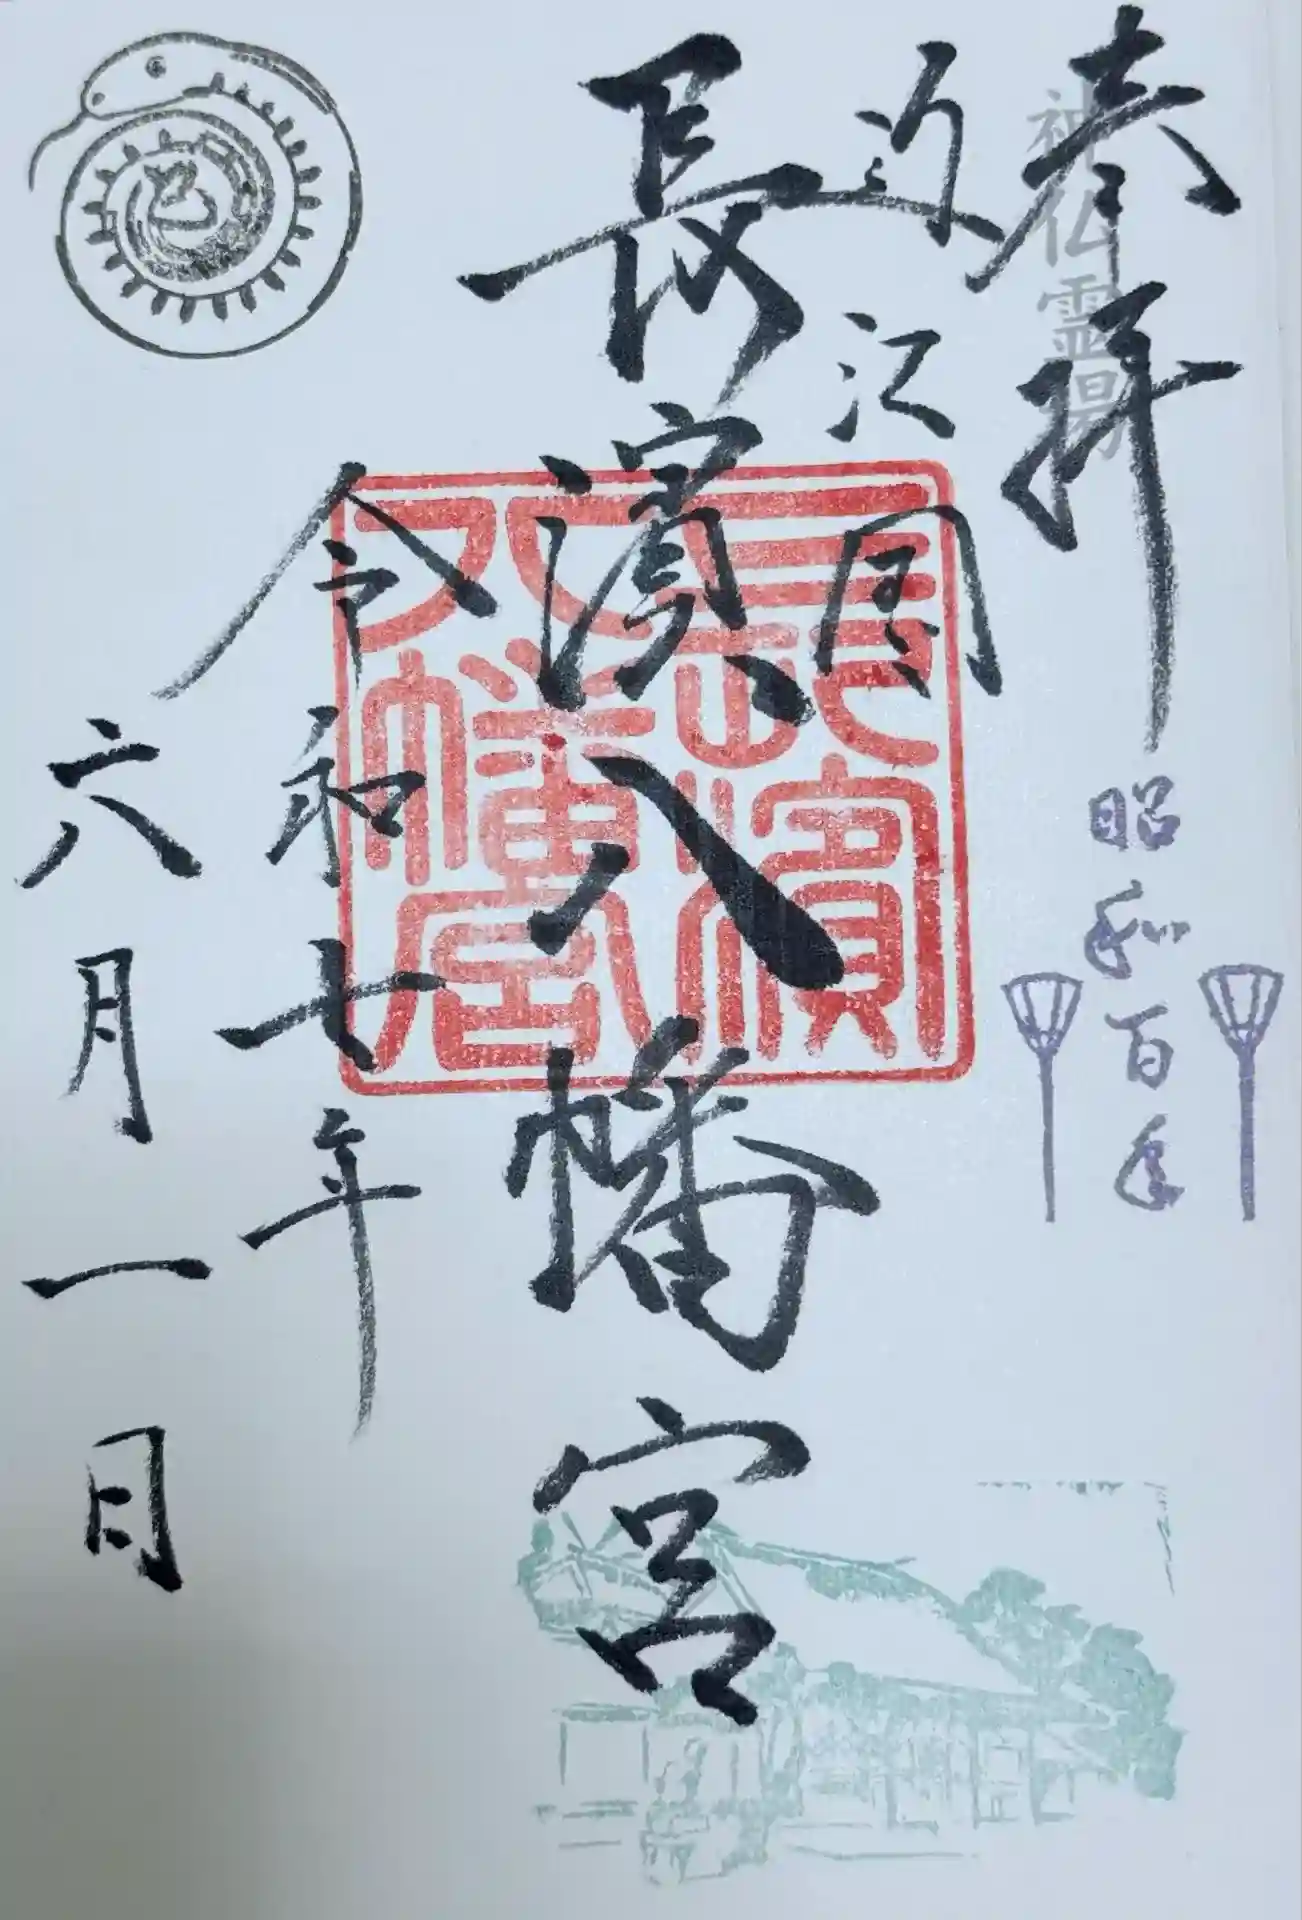 奉拝
神仏霊場
昭和百年
近江国
長濱八幡宮
長濱八幡宮
令和七年
六月一日
巳